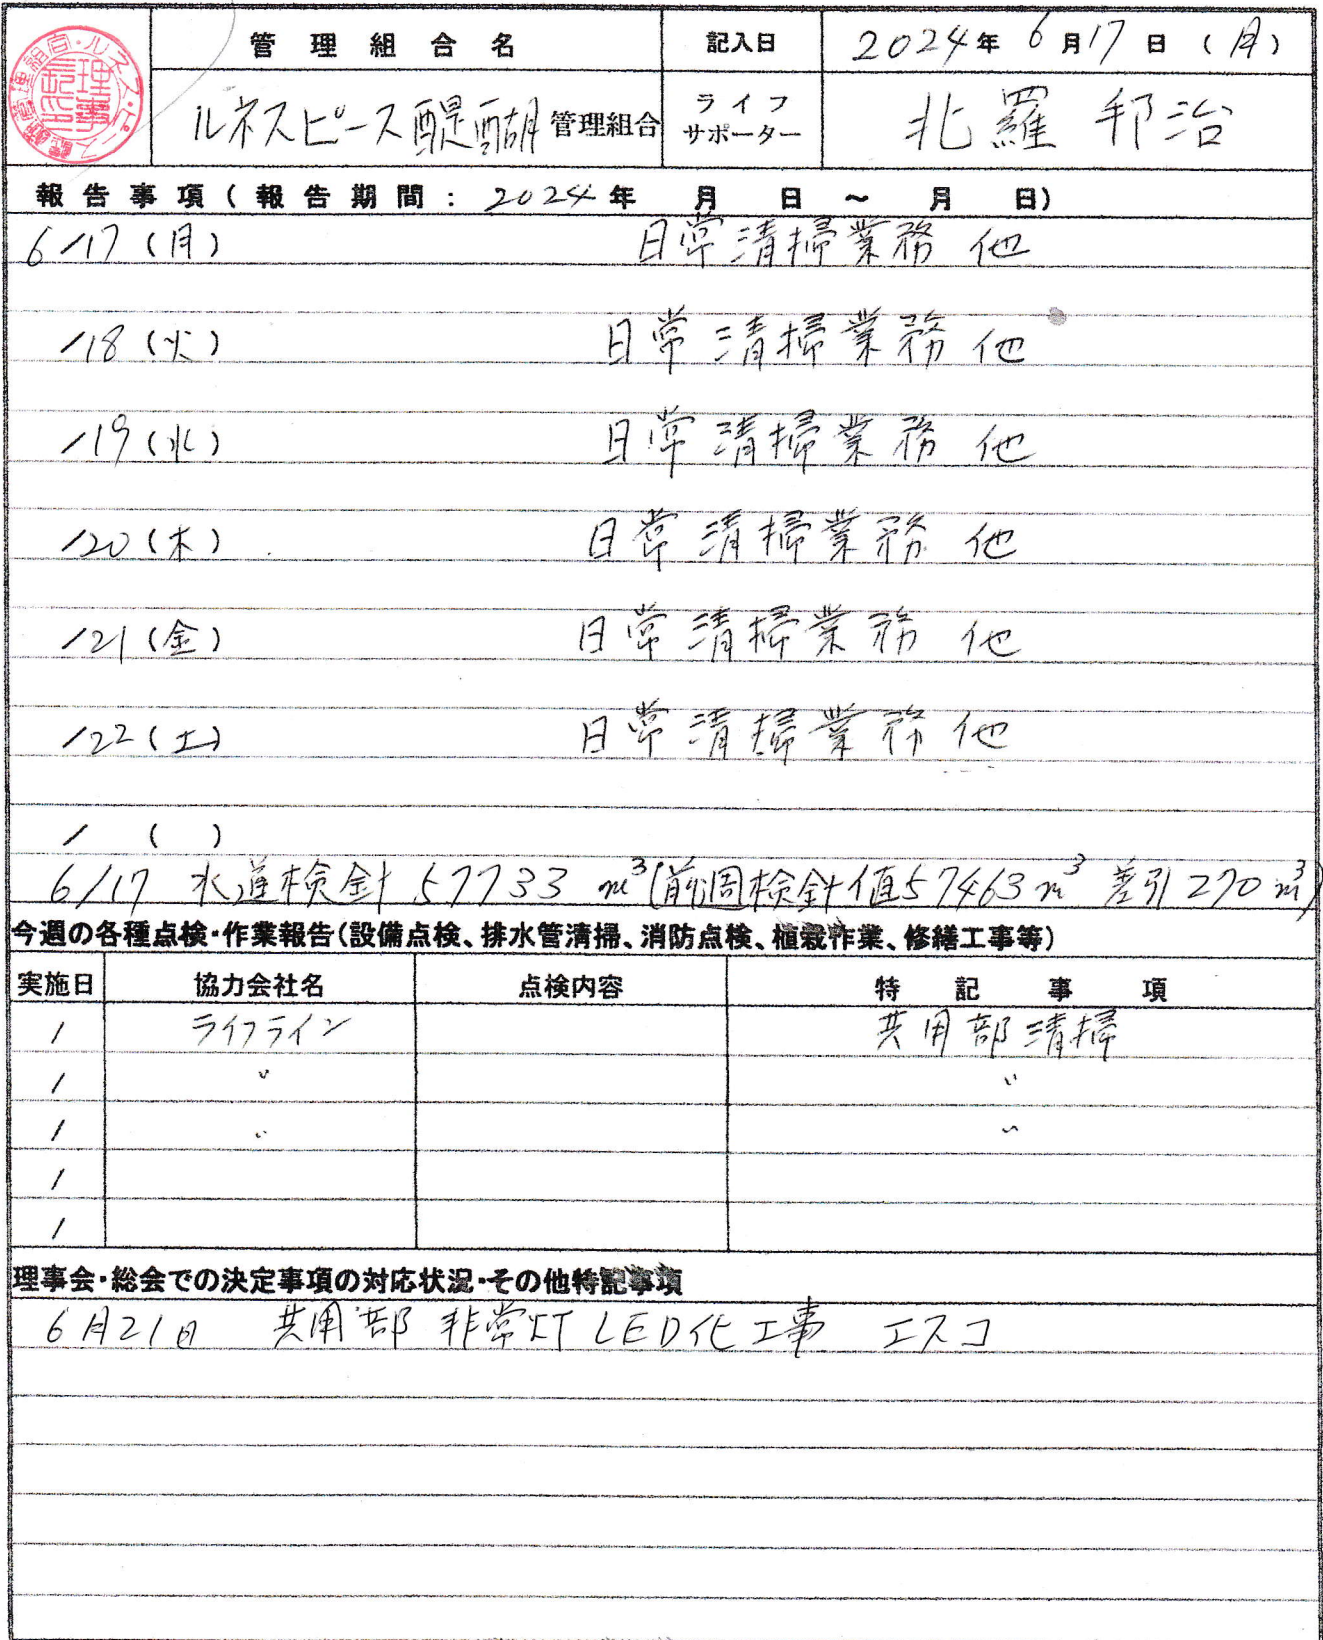 管理組合名 記入日 2024年 6月17日(月)
ルネスピース醍醐 管理組合 ライフサポーター 北羅 邦治
報告事項(報告期間:2024年 月 日 ~ 月 日)
6/17(月) 日常清掃業務 他
/18(火) 日常清掃業務 他
/19(水) 日常清掃業務 他
/20(木) 日常清掃業務 他
/21(金) 日常清掃業務 他
/22(土) 日常清掃業務 他
/ ( )
6/17 水道検針 57733 m³(前週検針値57463m³ 差引270m³)
今週の各種点検・作業報告(設備点検、排水管清掃、消防点検、植栽作業、修繕工事等)
実施日 協力会社名 点検内容 特記事項
/ ライフライン 共用部清掃
/ 〃 〃
/ 〃 〃
/
/
理事会・総会での決定事項の対応状況・その他特記事項
6月21日 共用部 非常灯LED化工事 エスコ